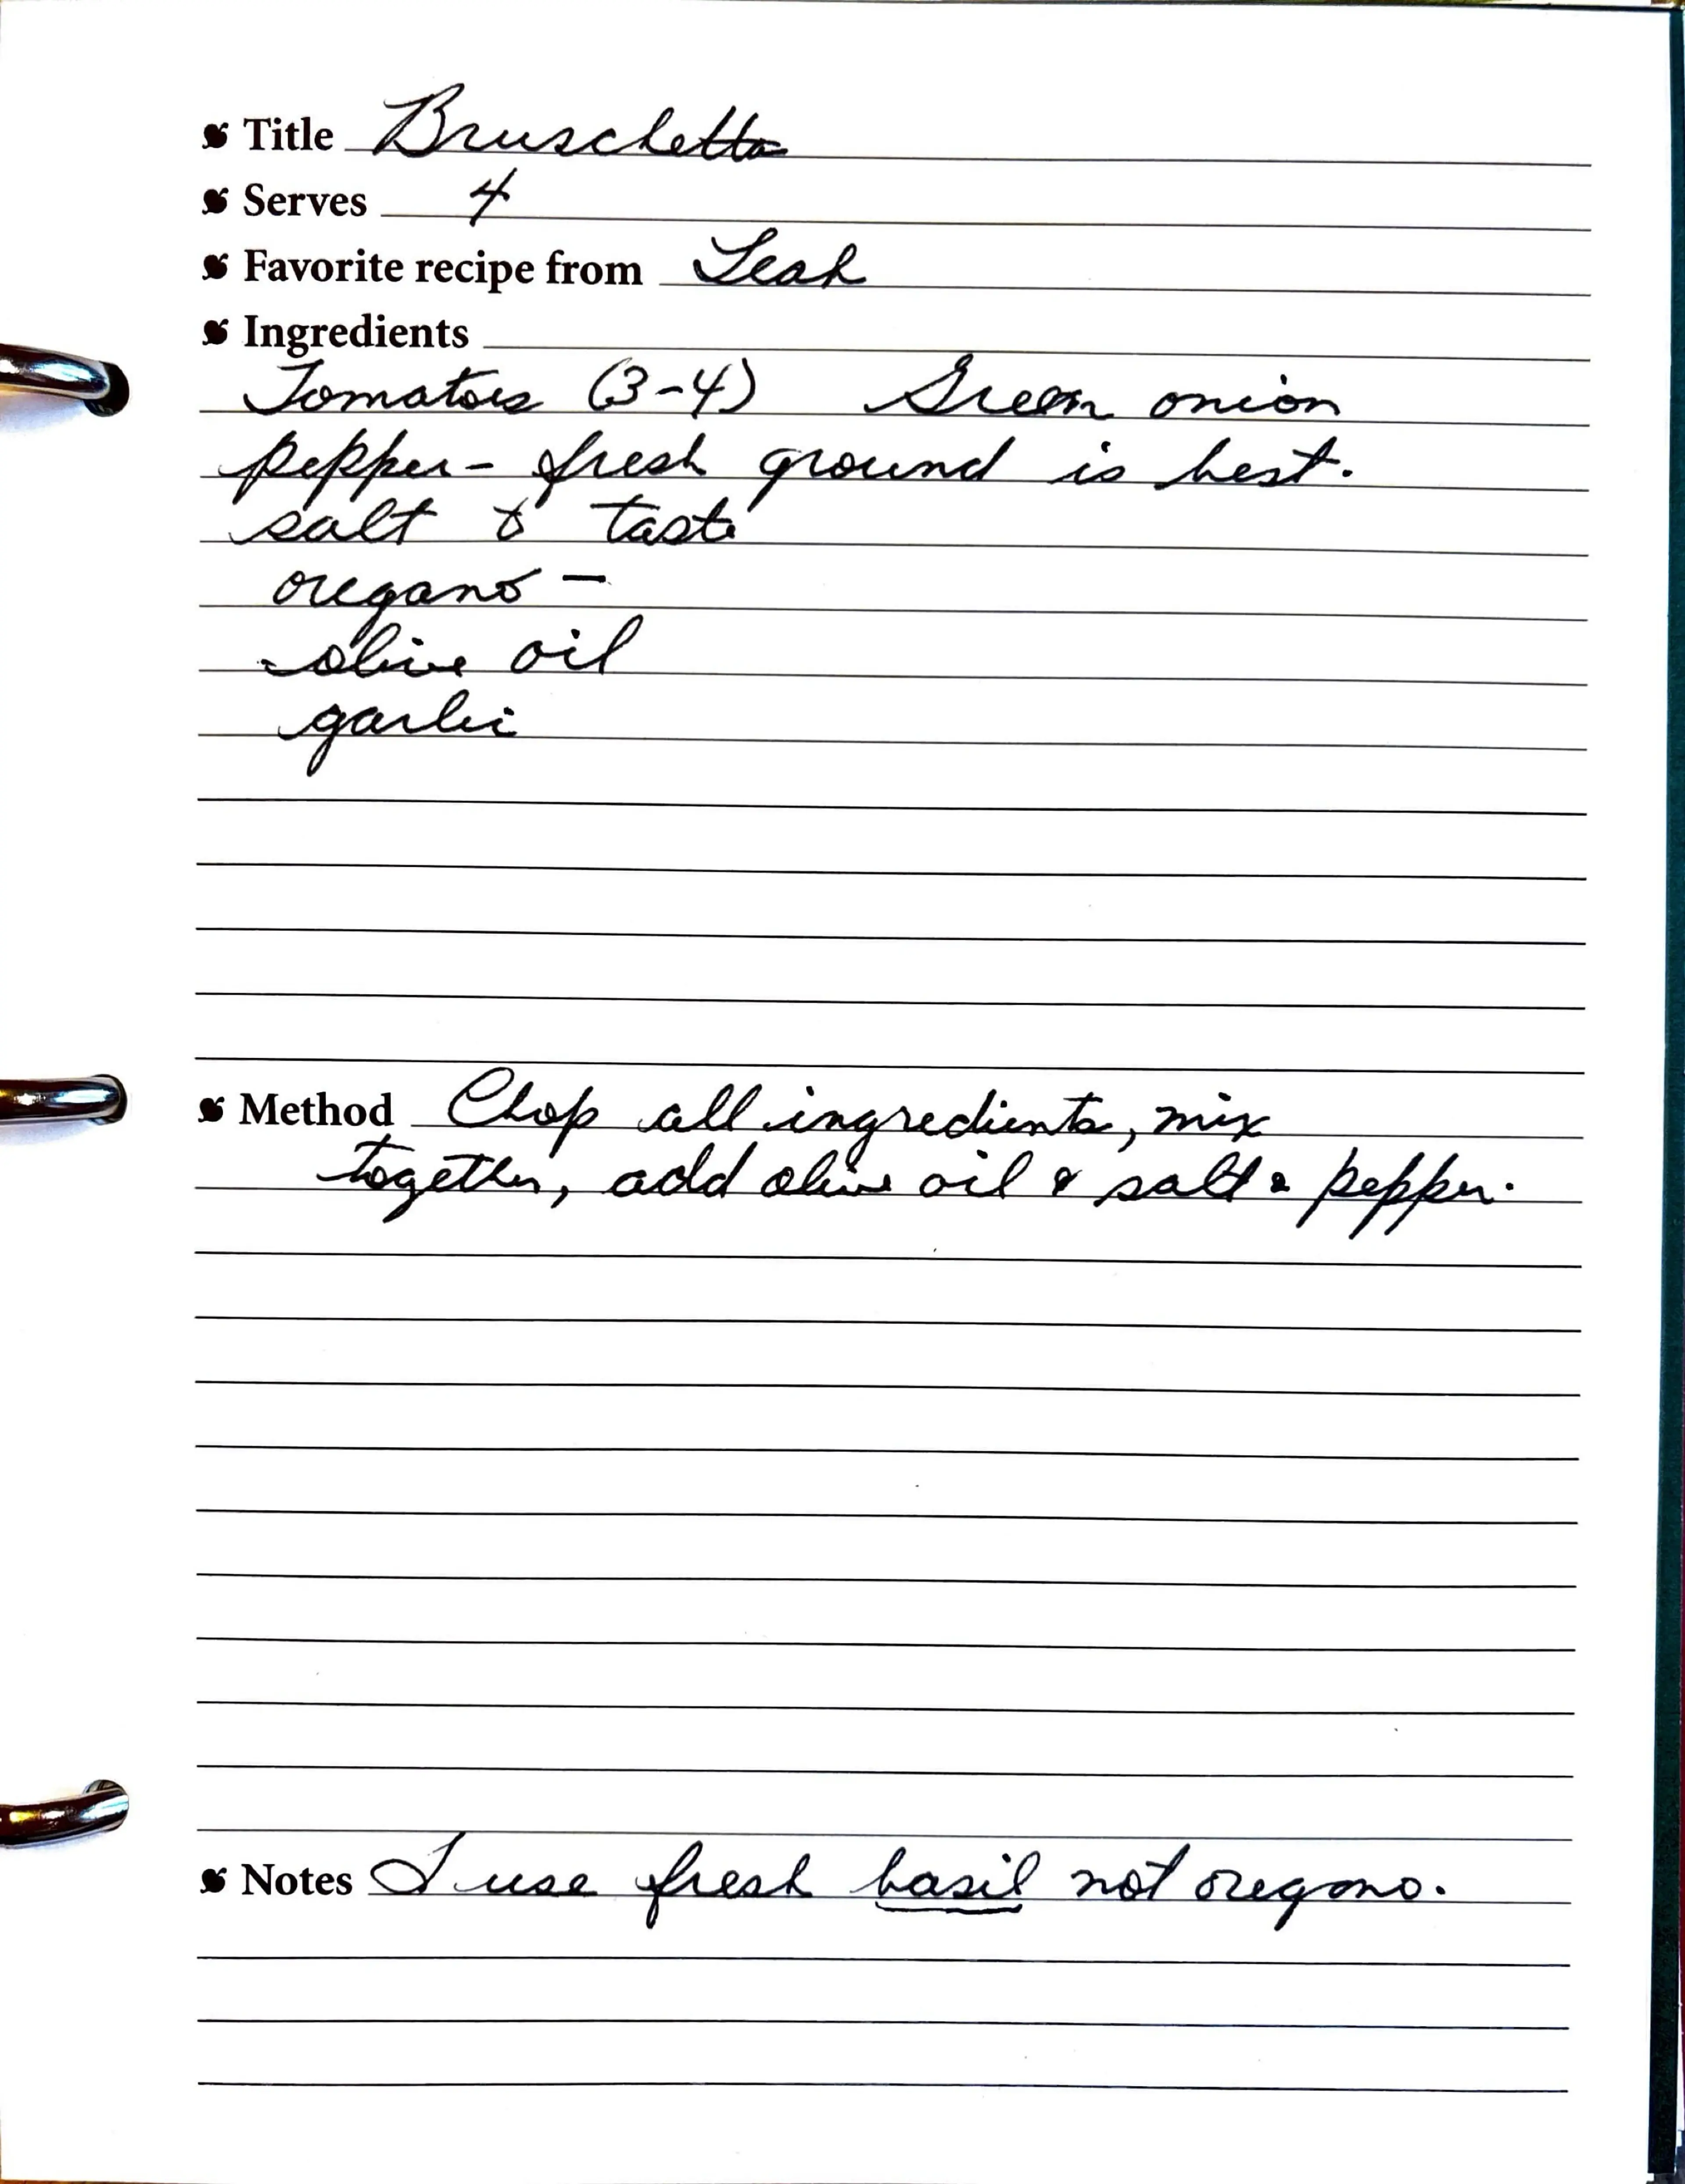 Title Bruschetta
Serves 4
Favorite recipe from Leah
Ingredients
Tomatoes (3-4) Green onion
pepper - fresh ground is best.
salt to taste
oregano -
olive oil
garlic
Method Chop all ingredients, mix
together, add olive oil & salt & pepper.
Notes I use fresh basil not oregano.